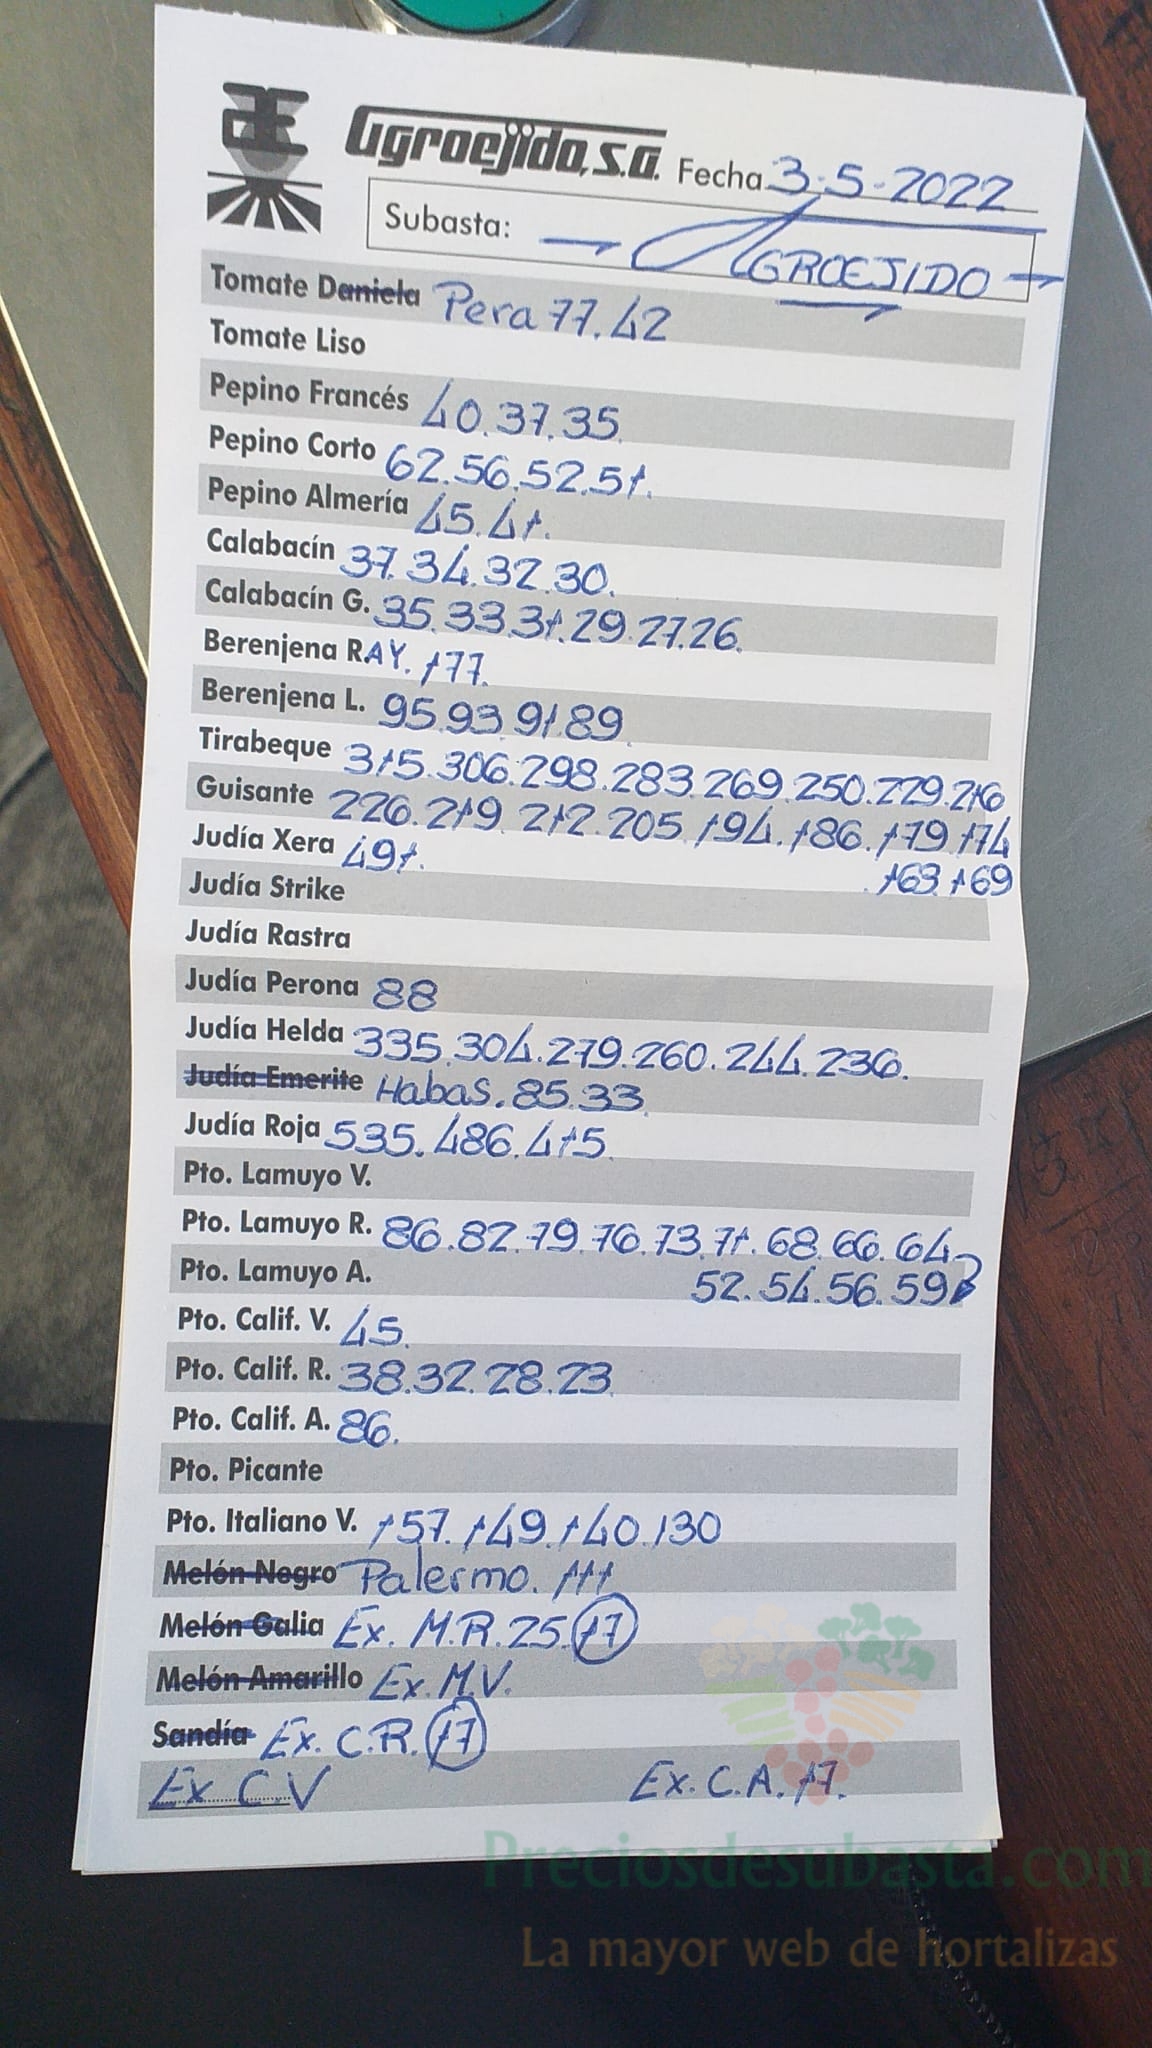 Agroejido, S.A. Fecha 3-5-2022
Subasta: AGROEJIDO
Tomate Daniela Pera 77.42
Tomate Liso
Pepino Francés 40.37.35
Pepino Corto 62.56.52.51.
Pepino Almería 45.41.
Calabacín 37.34.32.30.
Calabacín G. 35.33.31.29.27.26.
Berenjena RAY. 177.
Berenjena L. 95.93.91.89
Tirabeque 315.306.298.283.269.250.229.216
Guisante 226.219.212.205.194.186.179.174
163.169
Judía Xera 491.
Judía Strike
Judía Rastra
Judía Perona 88
Judía Helda 335.304.279.260.244.236.
Judía Emerite Habas. 85.33
Judía Roja 535.486.415
Pto. Lamuyo V.
Pto. Lamuyo R. 86.82.79.76.73.71.68.66.64
Pto. Lamuyo A. 52.54.56.59
Pto. Calif. V. 45.
Pto. Calif. R. 38.32.28.23
Pto. Calif. A. 86.
Pto. Picante
Pto. Italiano V. 157.149.140.130
Melón Negro Palermo. 111
Melón Galia Ex. M.R. 25.17
Melón Amarillo Ex. M.V.
Sandía Ex. C.R. 17
Ex C.V Ex. C.A. 17.
Preciosdesubasta.com
La mayor web de hortalizas